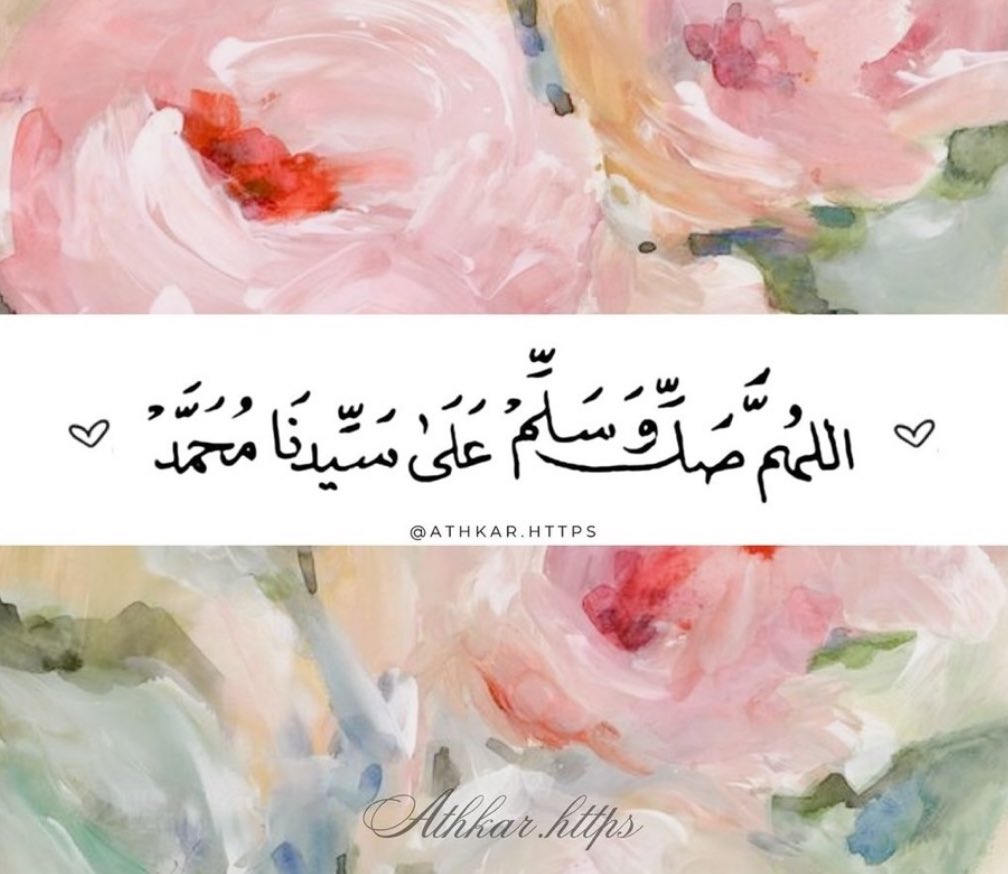 اللَّهُمَّ صَلِّ وَسَلِّمْ عَلَىٰ سَيِّدِنَا مُحَمَّدْ
@ATHKAR.HTTPS
Athkar.https